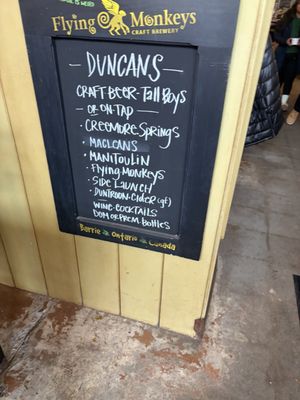 Flying Monkeys
CRAFT BREWERY
DUNCANS
CRAFT BEER-Tall Boys
- or ON-TAP -
• CREEMORE SPRINGS
• MACLEANS
• MANITOULIN
• FLYING MONKEYS
• SIDE LAUNCH
• DUNTROON-CIDER (gf)
- WINE-COCKTAILS
DOM OR PREM. bottles
Barrie Ontario Canada